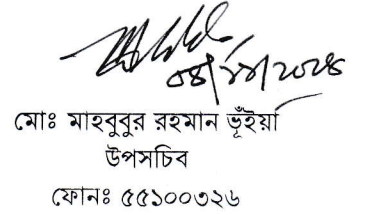 ০৪/১১/২০২৪
মোঃ মাহবুবুর রহমান ভূঁইয়া
উপসচিব
ফোনঃ ৫৫১০০৩২৬